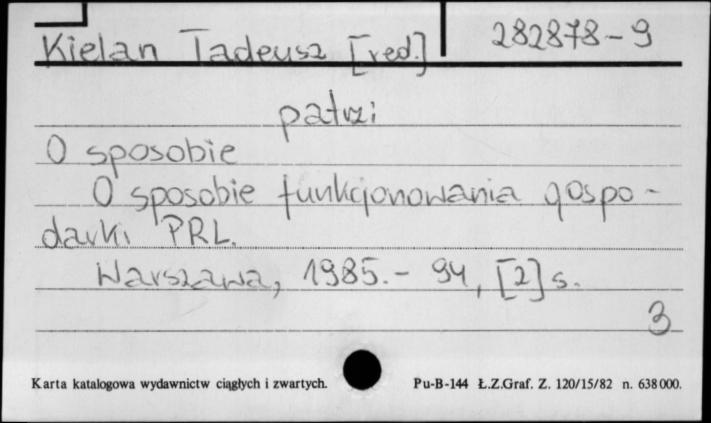 Kielan Tadeusz [red.] 282878-9
patrzi
O sposobie
O sposobie funkcjonowania gospo-
darki PRL.
Warszawa, 1985. - 94, [2] s.
3
Karta katalogowa wydawnictw ciągłych i zwartych. Pu-B-144 Ł.Z.Graf. Z. 120/15/82 n. 638000.